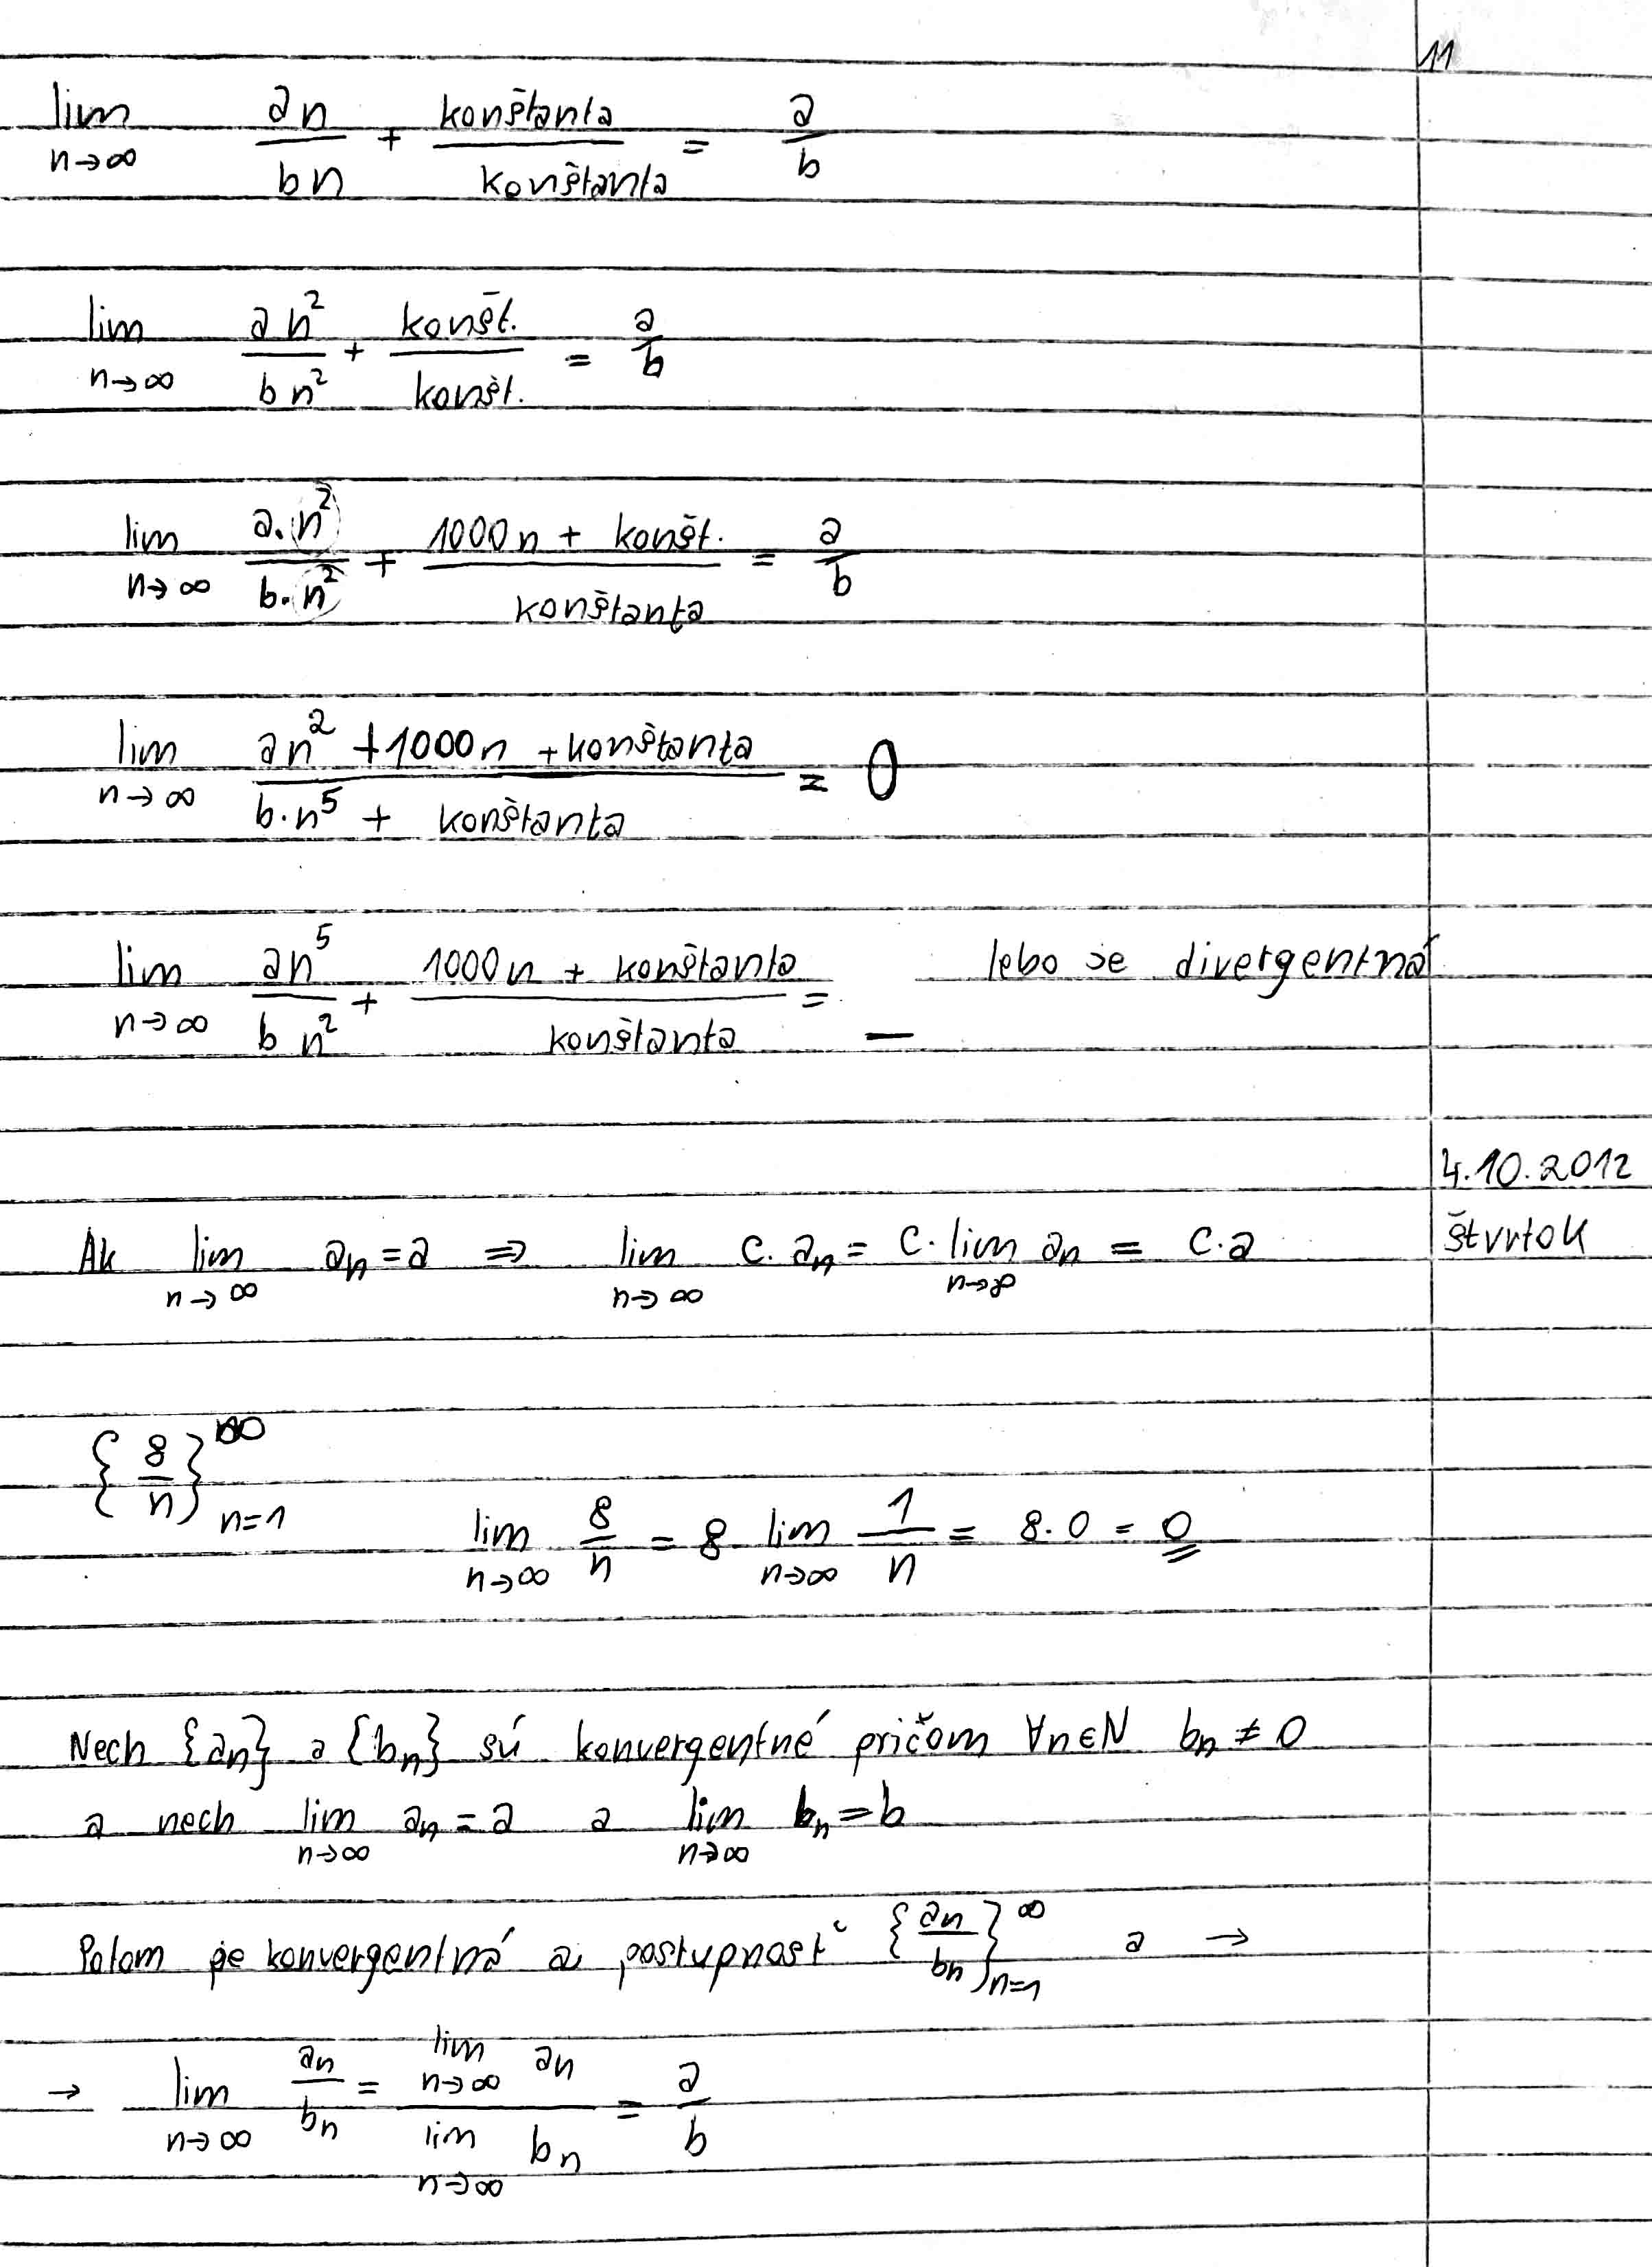 11
lim n→∞ an/bn + konštanta/konštanta = a/b
lim n→∞ an²/bn² + konšt./konšt. = a/b
lim n→∞ a·n²/b·n² + 1000n + konšt./konštanta = a/b
lim n→∞ an² + 1000n + konštanta / b·n⁵ + konštanta = 0
lim n→∞ an⁵/bn² + 1000n + konštanta/konštanta = — lebo je divergentná
4.10.2012
štvrtok
Ak lim n→∞ aₙ = a ⇒ lim n→∞ c·aₙ = c·lim n→∞ aₙ = c·a
{8/n}∞ n=1
lim n→∞ 8/n = 8 lim n→∞ 1/n = 8·0 = 0
Nech {aₙ} a {bₙ} sú konvergentné pričom ∀n∈N bₙ ≠ 0
a nech lim n→∞ aₙ = a a lim n→∞ bₙ = b
Potom je konvergentná aj postupnosť {aₙ/bₙ}∞ n=1 a →
→ lim n→∞ aₙ/bₙ = lim n→∞ aₙ / lim n→∞ bₙ = a/b